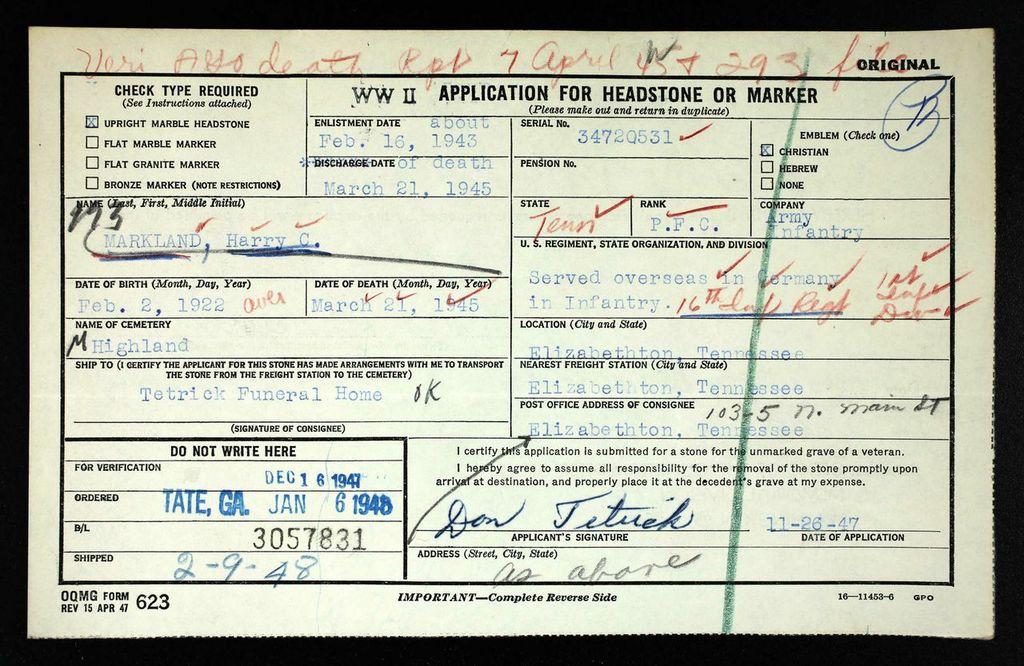 Veri AGO death Rpt 7 April 45 + 293 file
ORIGINAL
CHECK TYPE REQUIRED
(See Instructions attached)
☒ UPRIGHT MARBLE HEADSTONE
☐ FLAT MARBLE MARKER
☐ FLAT GRANITE MARKER
☐ BRONZE MARKER (NOTE RESTRICTIONS)
WW II APPLICATION FOR HEADSTONE OR MARKER
(Please make out and return in duplicate)
ENLISTMENT DATE about
Feb. 16, 1943
DISCHARGE DATE of death
March 21, 1945
SERIAL No.
34720531
PENSION No.
EMBLEM (Check one)
☒ CHRISTIAN
☐ HEBREW
☐ NONE
B
NAME (Last, First, Middle Initial)
MARKLAND, Harry C.
STATE
Tenn
RANK
P.F.C.
COMPANY
Army
Infantry
U. S. REGIMENT, STATE ORGANIZATION, AND DIVISION
Served overseas in Germany
in Infantry. 16th Inf Regt 1st Inf Div
DATE OF BIRTH (Month, Day, Year)
Feb. 2, 1922 over
DATE OF DEATH (Month, Day, Year)
March 21, 1945
NAME OF CEMETERY
M Highland
LOCATION (City and State)
Elizabethton, Tennessee
SHIP TO (I CERTIFY THE APPLICANT FOR THIS STONE HAS MADE ARRANGEMENTS WITH ME TO TRANSPORT
THE STONE FROM THE FREIGHT STATION TO THE CEMETERY)
Tetrick Funeral Home OK
(SIGNATURE OF CONSIGNEE)
NEAREST FREIGHT STATION (City and State)
Elizabethton, Tennessee
POST OFFICE ADDRESS OF CONSIGNEE 103-5 N. Main St
Elizabethton, Tennessee
DO NOT WRITE HERE
FOR VERIFICATION
DEC 16 1947
ORDERED
TATE, GA. JAN 6 1948
B/L
3057831
SHIPPED
2-9-48
I certify this application is submitted for a stone for the unmarked grave of a veteran.
I hereby agree to assume all responsibility for the removal of the stone promptly upon
arrival at destination, and properly place it at the decedent's grave at my expense.
Don Tetrick 11-26-47
APPLICANT'S SIGNATURE DATE OF APPLICATION
ADDRESS (Street, City, State)
as above
OQMG FORM
REV 15 APR 47 623
IMPORTANT—Complete Reverse Side
16—11453-6 GPO